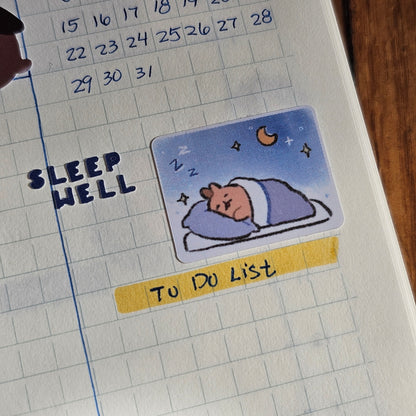 15 16 17 18 19
22 23 24 25 26 27 28
29 30 31
SLEEP
WELL
Z
Z
Z
TO DO LIST